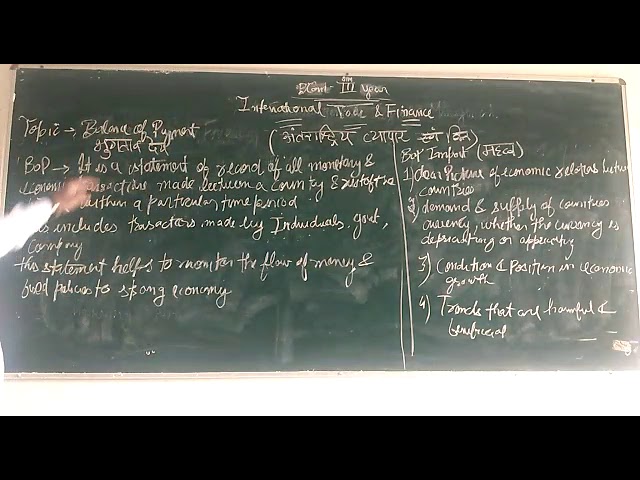 III year
International Trade & Finance
(अंतर्राष्ट्रीय व्यापार एवं वित्त)
Topic → Balance of Payment
भुगतान
BoP → It is a statement or record of all monetary &
economic transactions made between a country & rest of the
within a particular time period
includes transactors made by Individuals, govt,
Company
this statement helps to monitor the flow of money &
to strong economy
BoP Import (महत्व)
1) clear Picture of economic relations betwn
countries
2) demand & supply of countries
currency, whether the currency is
depreciating or
3) Condition & Position in economic
growth
4) Trends that are harmful &
beneficial